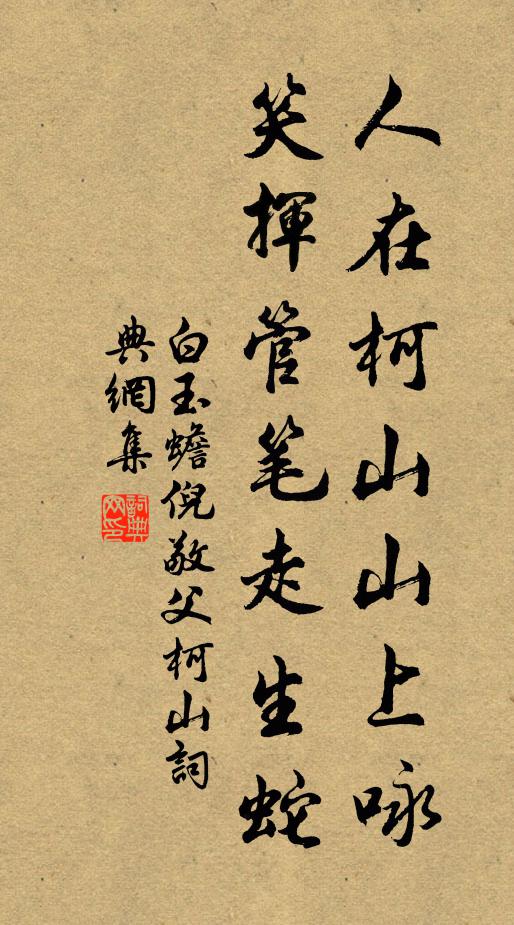 人在柯山山上咏
笑揮管笔走生蛇
白玉蟾倪敬父柯山詞
典網集
詞典网印